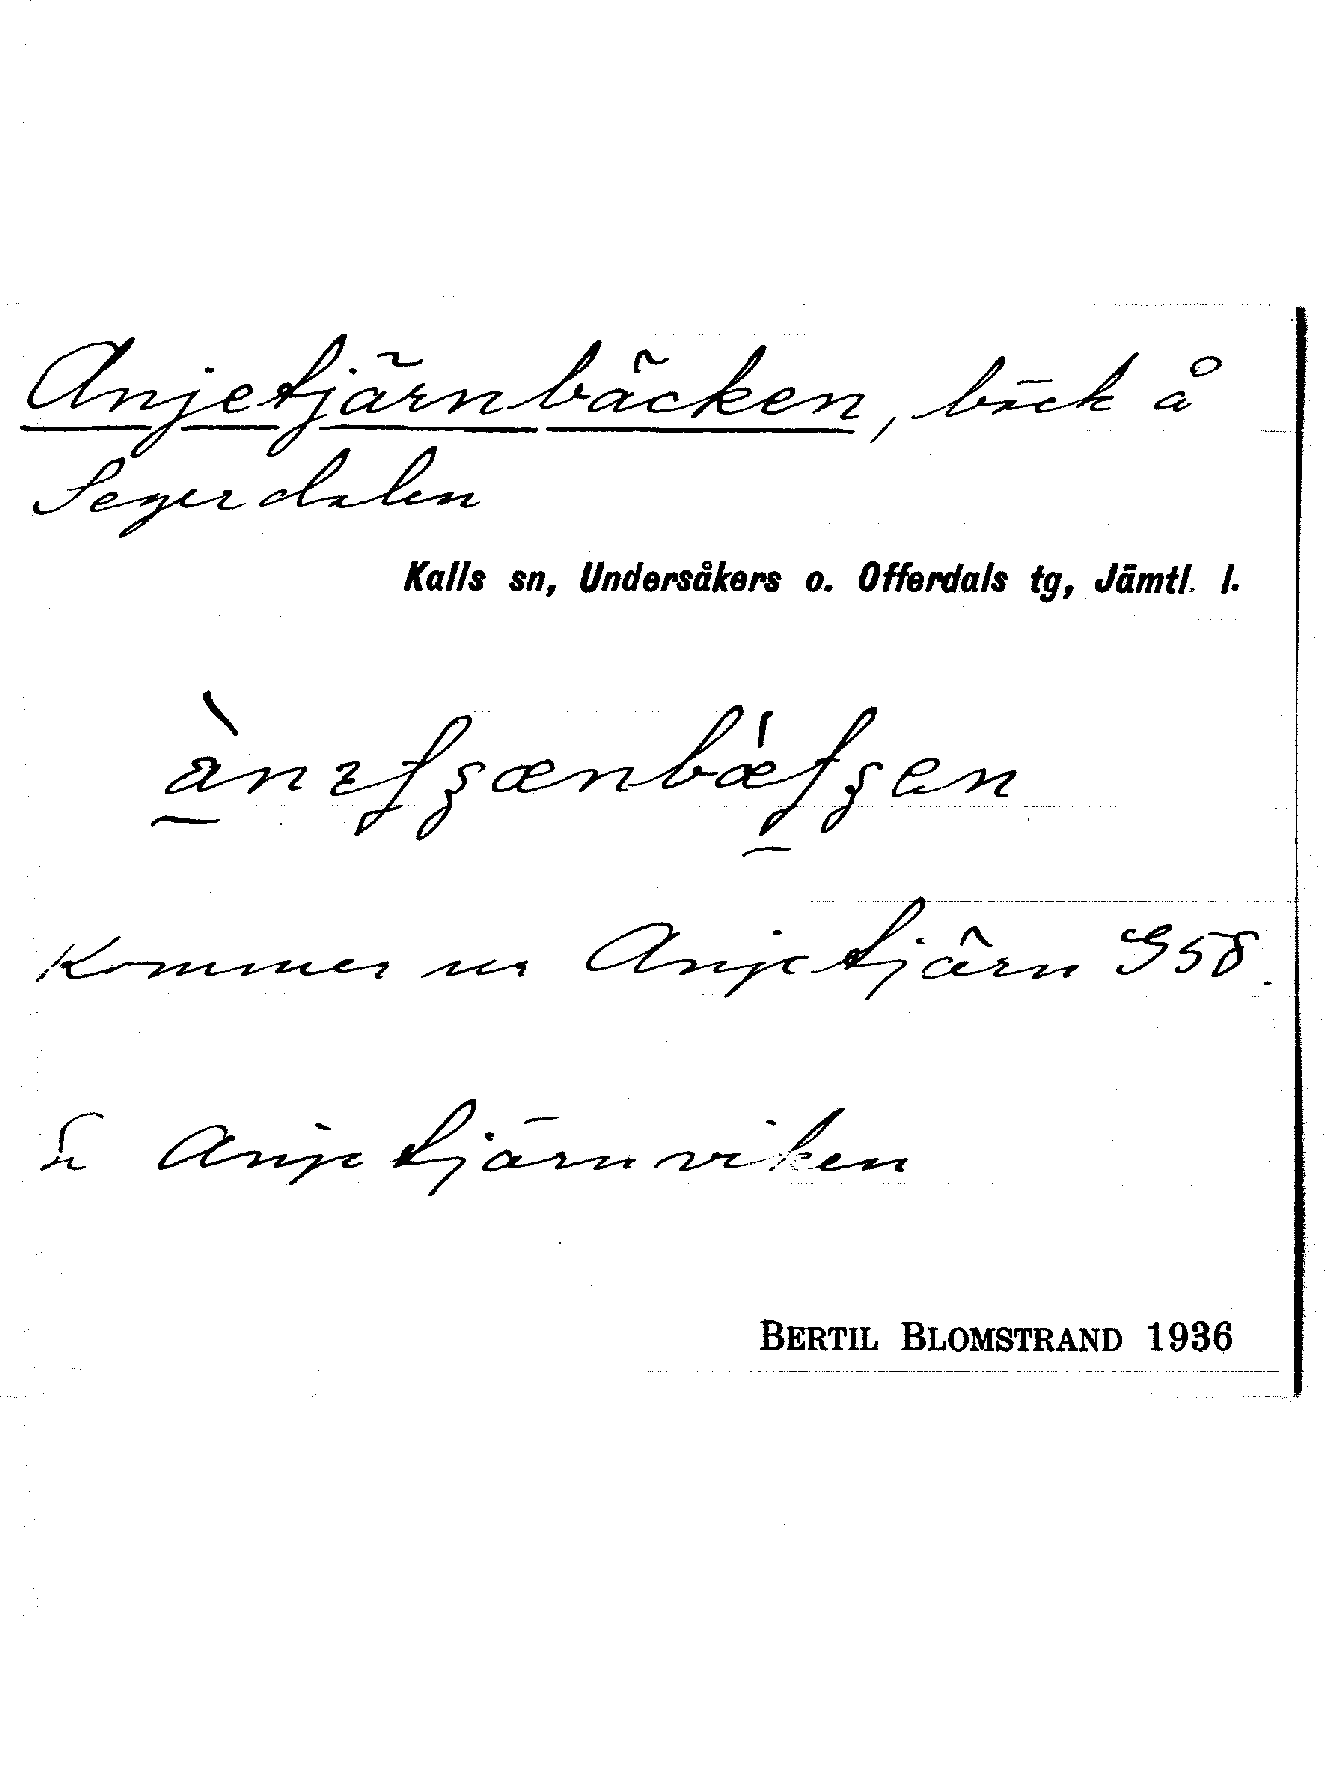 Anjetjärnbäcken, bäck å
Segerdalen
Kalls sn, Undersåkers o. Offerdals tg, Jämtl. l.
Kommer ur Anjetjärn G58.
Se Anjetjärnviken
BERTIL BLOMSTRAND 1936